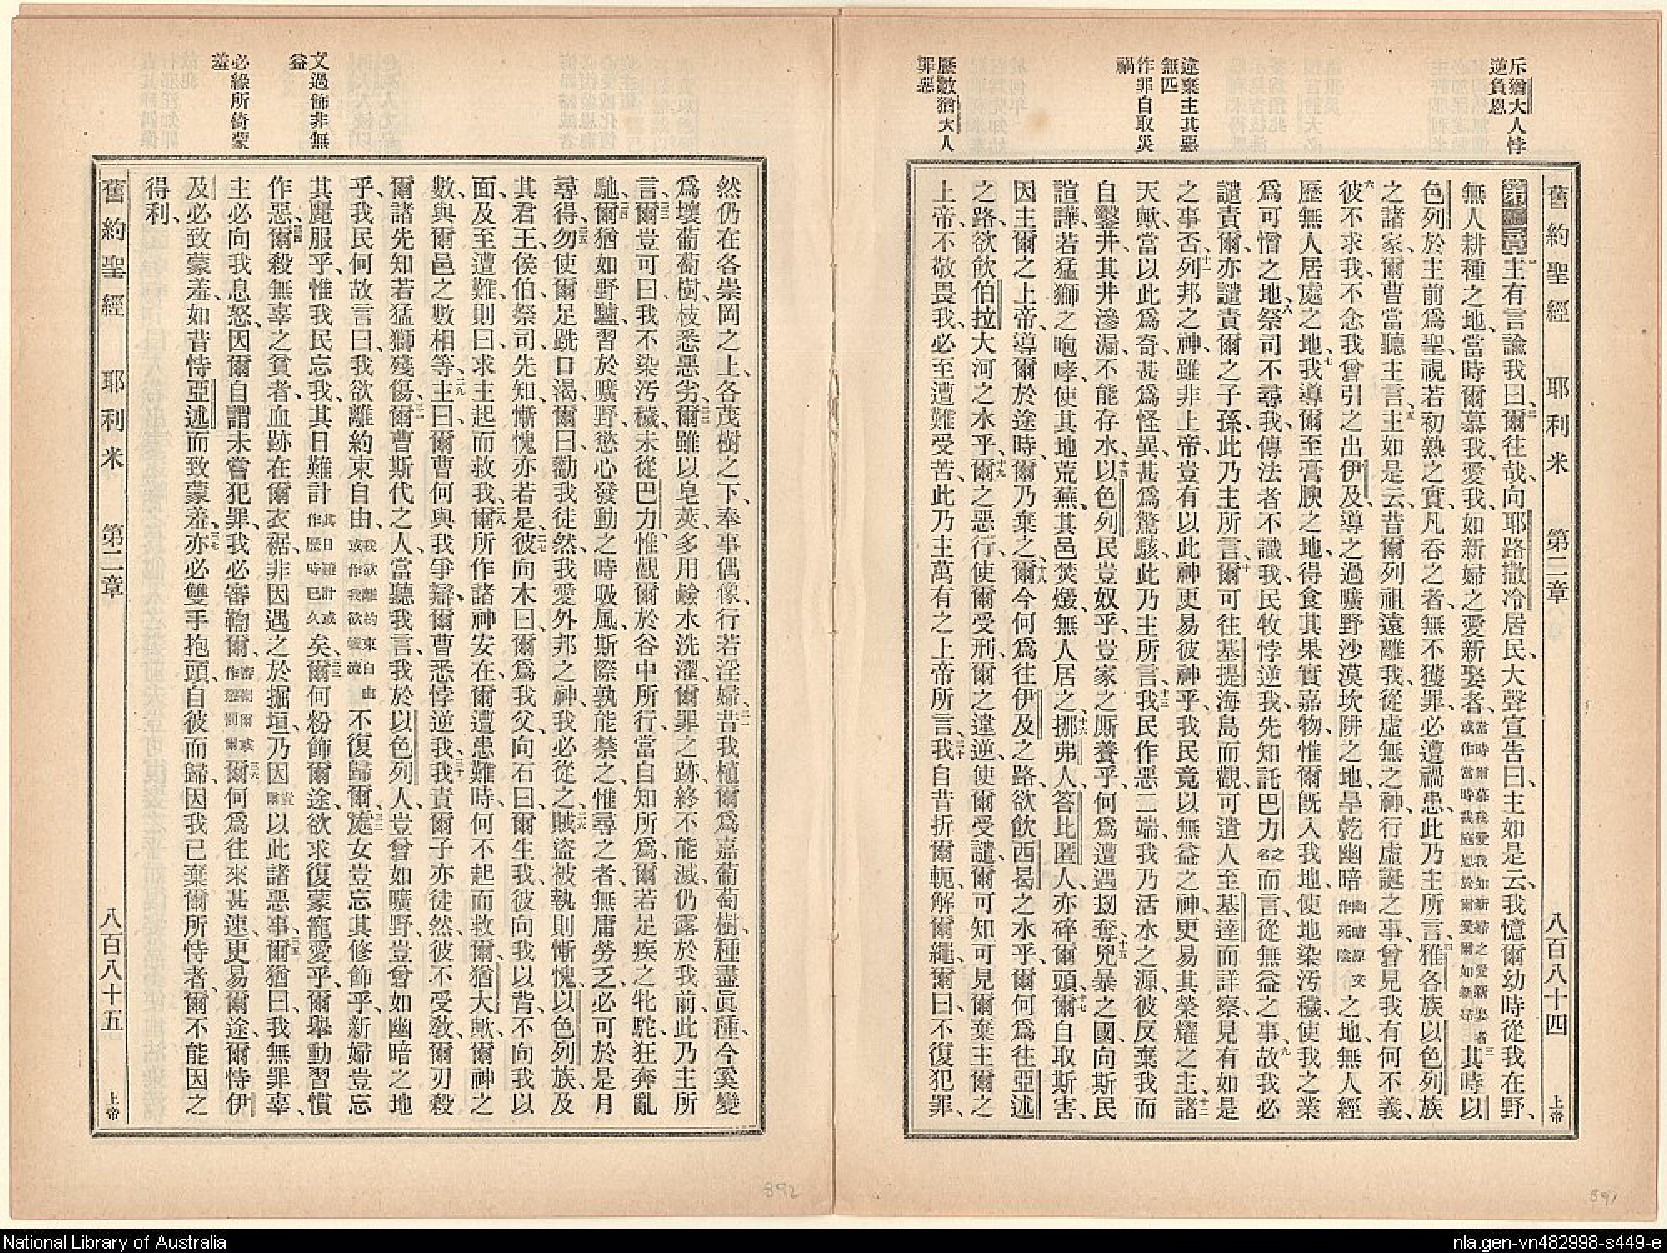 斥猶大人悖
逆負恩
違棄主其惡
無匹
作罪自取災
禍
歷數猶大人
罪惡
舊約聖經 耶利米 第二章 八百八十四 上帝
第二章一主有言諭我曰、二爾往哉、向耶路撒冷居民大聲宣告曰、主如是云、我憶爾幼時從我在野、
無人耕種之地、當時爾慕我愛我、如新婦之愛新娶者、當時爾慕我愛我如新婦之愛新娶者或作當時我施恩於爾愛爾如新婦三其時以
色列於主前爲聖、視若初熟之實、凡吞之者、無不獲罪、必遭禍患、此乃主所言、四雅各族以色列族
之諸家、爾曹當聽主言、五主如是云、昔爾列祖遠離我、從虛無之神、行虛誕之事、曾見我有何不義、
六彼不求我、不念我曾引之出伊及、導之過曠野沙漠坎阱之地、旱乾幽暗之地、無人經
歷無人居處之地、七我導爾至膏腴之地、得食其果實嘉物、惟爾旣入我地、使地染汚穢、使我之業
爲可憎之地、八祭司不尋我、傳法者不識我、民牧悖逆我、先知託巴力之名而言、從無益之事、九故我必
譴責爾、亦譴責爾之子孫、此乃主所言、十爾可往基提海島而觀、可遣人至基達而詳察、見有如是
之事否、十一列邦之神、雖非上帝、豈有以此神更易彼神乎、我民竟以無益之神、更易其榮耀之主、十二諸
天歟、當以此爲奇、甚爲怪異、甚爲驚駭、此乃主所言、十三我民作惡二端、我乃活水之源、彼反棄我、而
自鑿井、其井滲漏、不能存水、十四以色列民豈奴乎、豈家之厮養乎、何爲遭遇刼奪、十五兇暴之國、向斯民
諠譁、若猛獅之咆哮、使其地荒蕪、其邑焚燬、無人居之、十六挪弗人答比匿人、亦碎爾頭、十七爾自取斯害、
因主爾之上帝、導爾於途時、爾乃棄之、十八爾今何爲往伊及之路、欲飲西曷之水乎、爾何爲往亞述
之路、欲飲伯拉大河之水乎、十九爾之惡行、使爾受刑、爾之違逆、使爾受譴、爾可知可見、爾棄主爾之
上帝、不敬畏我、必至遭難受苦、此乃主萬有之上帝所言、二十我自昔折爾軛、解爾繩、爾曰、不復犯罪、
文過飾非無
益
必緣所倚蒙
羞
然仍在各崇岡之上、各茂樹之下、奉事偶像、行若淫婦、二一昔我植爾爲嘉葡萄樹、種盡眞種、今奚變
爲壞葡萄樹、枝悉惡劣、二二爾雖以皂莢多用鹼水洗濯、爾罪之跡、終不能滅、仍露於我前、此乃主所
言、二三爾豈可曰、我不染汚穢、未從巴力、惟觀爾於谷中所行、當自知所爲、爾若足疾之牝駝、狂奔亂
馳、二四爾猶如野驢、習於曠野、慾心發動之時吸風、斯際孰能禁之、惟尋之者、無庸勞乏、必可於是月
尋得、二五勿使爾足跣口渴、爾曰、勸我徒然、我愛外邦之神、我必從之、二六賊盜被執則慚愧、以色列族、及
其君王、侯伯、祭司、先知、慚愧亦若是、二七彼向木曰、爾爲我父、向石曰、爾生我、彼向我以背、不向我以
面、及至遭難、則曰、求主起而救我、二八爾所作諸神安在、爾遭患難時、何不起而救爾、猶大歟、爾神之
數、與爾邑之數相等、二九主曰、爾曹何與我爭辯、爾曹悉悖逆我、三十我責爾子亦徒然、彼不受敎、爾刃殺
爾諸先知、若猛獅殘傷、三一爾曹斯代之人、當聽我言、我於以色列人、豈曾如曠野、豈曾如幽暗之地
乎、我民何故言曰、我欲離約束自由、不復歸爾、三二處女豈忘其修飾乎、新婦豈忘
其麗服乎、惟我民忘我、其日難計其日難計或作歷時已久矣、三三爾何粉飾爾途、欲求復蒙寵愛乎、爾舉動習慣
作惡、三四爾殺無辜之貧者、血跡在爾衣裾、非因遇之於掘垣、乃因以此諸惡事、三五爾猶曰、我無罪辜、
主必向我息怒、因爾自謂未嘗犯罪、我必審鞫爾、三六爾何爲往來甚速、更易爾途、爾恃伊
及、必致蒙羞、如昔恃亞述而致蒙羞、三七亦必雙手抱頭、自彼而歸、因我已棄爾所恃者、爾不能因之
得利、
舊約聖經 耶利米 第二章 八百八十五 上帝
892
891
National Library of Australia
nla.gen-vn482998-s449-e